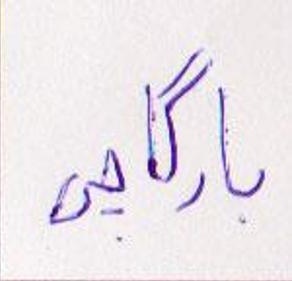 بارگاجی